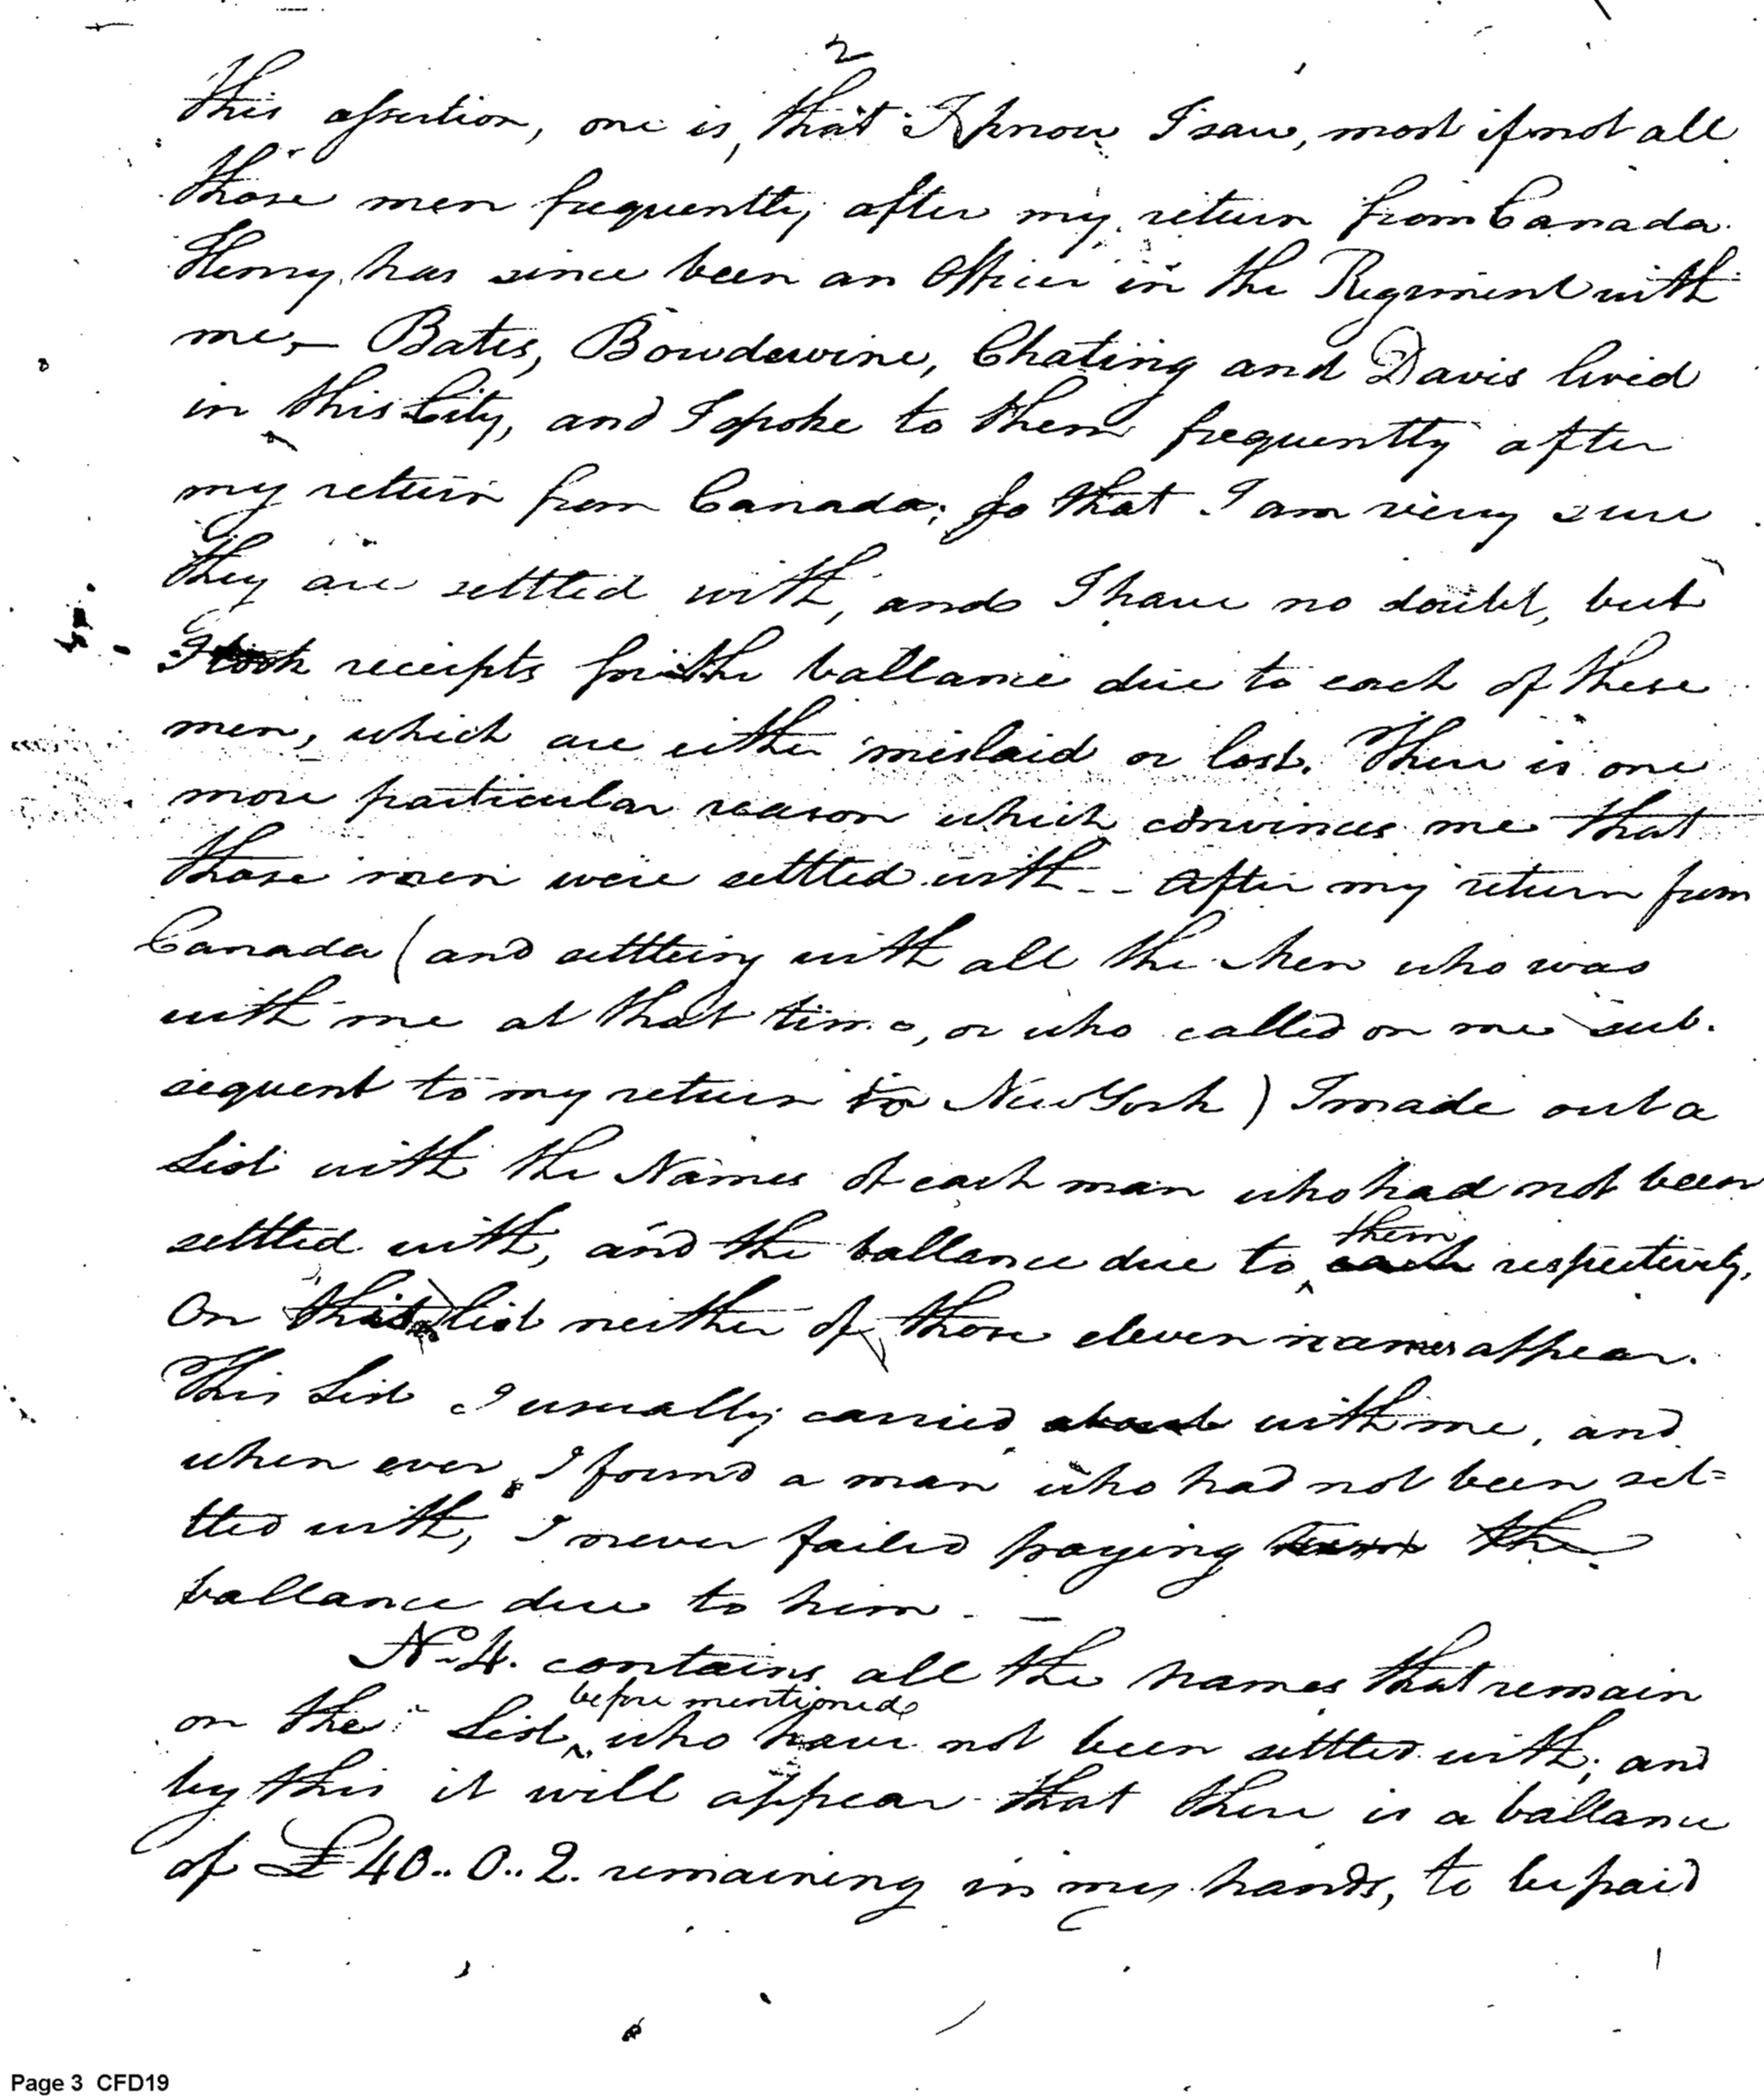 2
this assertion, one is, that I know I saw, most if not all
those men frequently after my return from Canada.
Henry has since been an Officer in the Regiment with
me,— Bates, Bowdewine, Chating and Davis lived
in this City, and I spoke to them frequently after
my return from Canada; so that I am very sure
they are settled with, and I have no doubt, but
I took receipts for the ballance due to each of these
men, which are either mislaid or lost. There is one
more particular reason which convinces me that
those men were settled with -- After my return from
Canada (and settleing with all the Men who was
with me at that time, or who called on me sub-
sequent to my return to New York) I made out a
List with the Names of each man who had not been
settled with, and the ballance due to them each respectively.
On this list neither of those eleven names appear.
This List I usually carried about with me, and
when ever I found a man who had not been set=
tled with, I never failed paying the
ballance due to him. —
No. 4. contains all the names that remain
on the List before mentioned who have not been settled with; and
by this it will appear that there is a ballance
of £40..0..2. remaining in my hands, to be paid
Page 3 CFD19